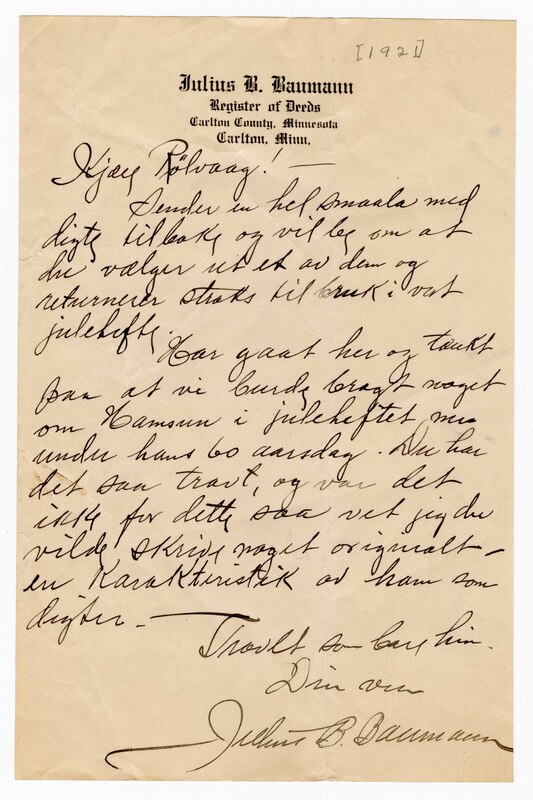 [1921]
Julius B. Baumann
Register of Deeds
Carlton County, Minnesota
Carlton, Minn.
Kjære Rölvaag! —
Sender en hel smaala med
digte tilbake og vil be om at
du vælger ut et av dem og
returnerer straks til bruk i vort
julehefte.
Har gaat her og tænkt
paa at vi burde bragt noget
om Hamsun i juleheftet nu
under hans 60 aarsdag. Du har
det saa travt, og var det
ikke for dette saa vet jeg du
vilde skrive noget originalt –
en Karakteristik av ham som
digter. —
Travlt som bare
Din ven
Julius B. Baumann